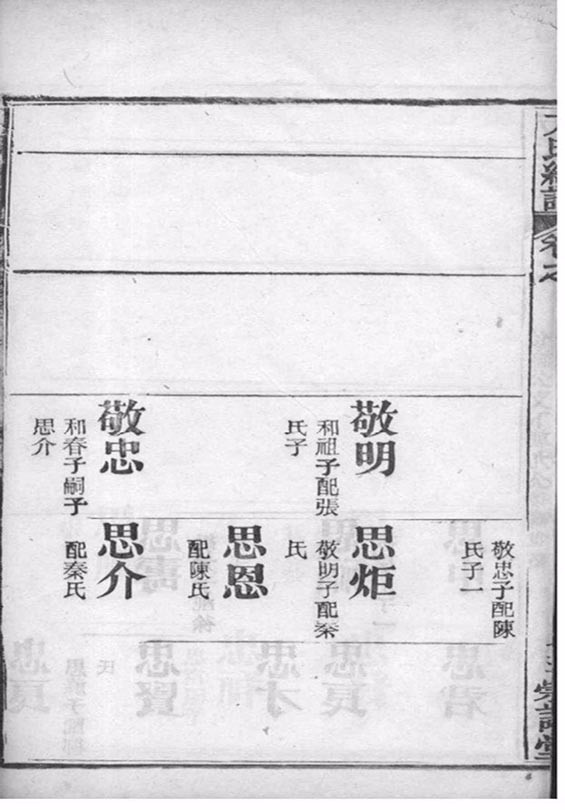 卷之
敬明
和祖子配張
氏子
敬忠
和春子嗣子
思介
敬忠子配陳
氏子一
思炬
敬明子配秦
氏
思恩
配陳氏
思介
配秦氏